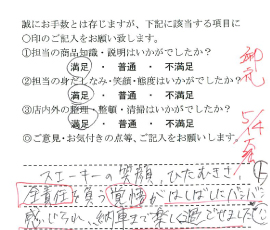 誠にお手数とは存じますが、下記に該当する項目に
〇印のご記入をお願い致します。
①担当の商品知識・説明はいかがでしたか？
満足 ・ 普通 ・ 不満足
②担当の身だしなみ・笑顔・態度はいかがでしたか？
満足 ・ 普通 ・ 不満足
③店内外の整理・整頓・清掃はいかがでしたか？
満足 ・ 普通 ・ 不満足
◎ご意見・お気付きの点等、ご記入をお願いします。
5/14
スエーキーの笑顔 ひたむきさ!
全責任を負う覚悟がはしばしに
感じられ、納車まで楽しく過ごせました